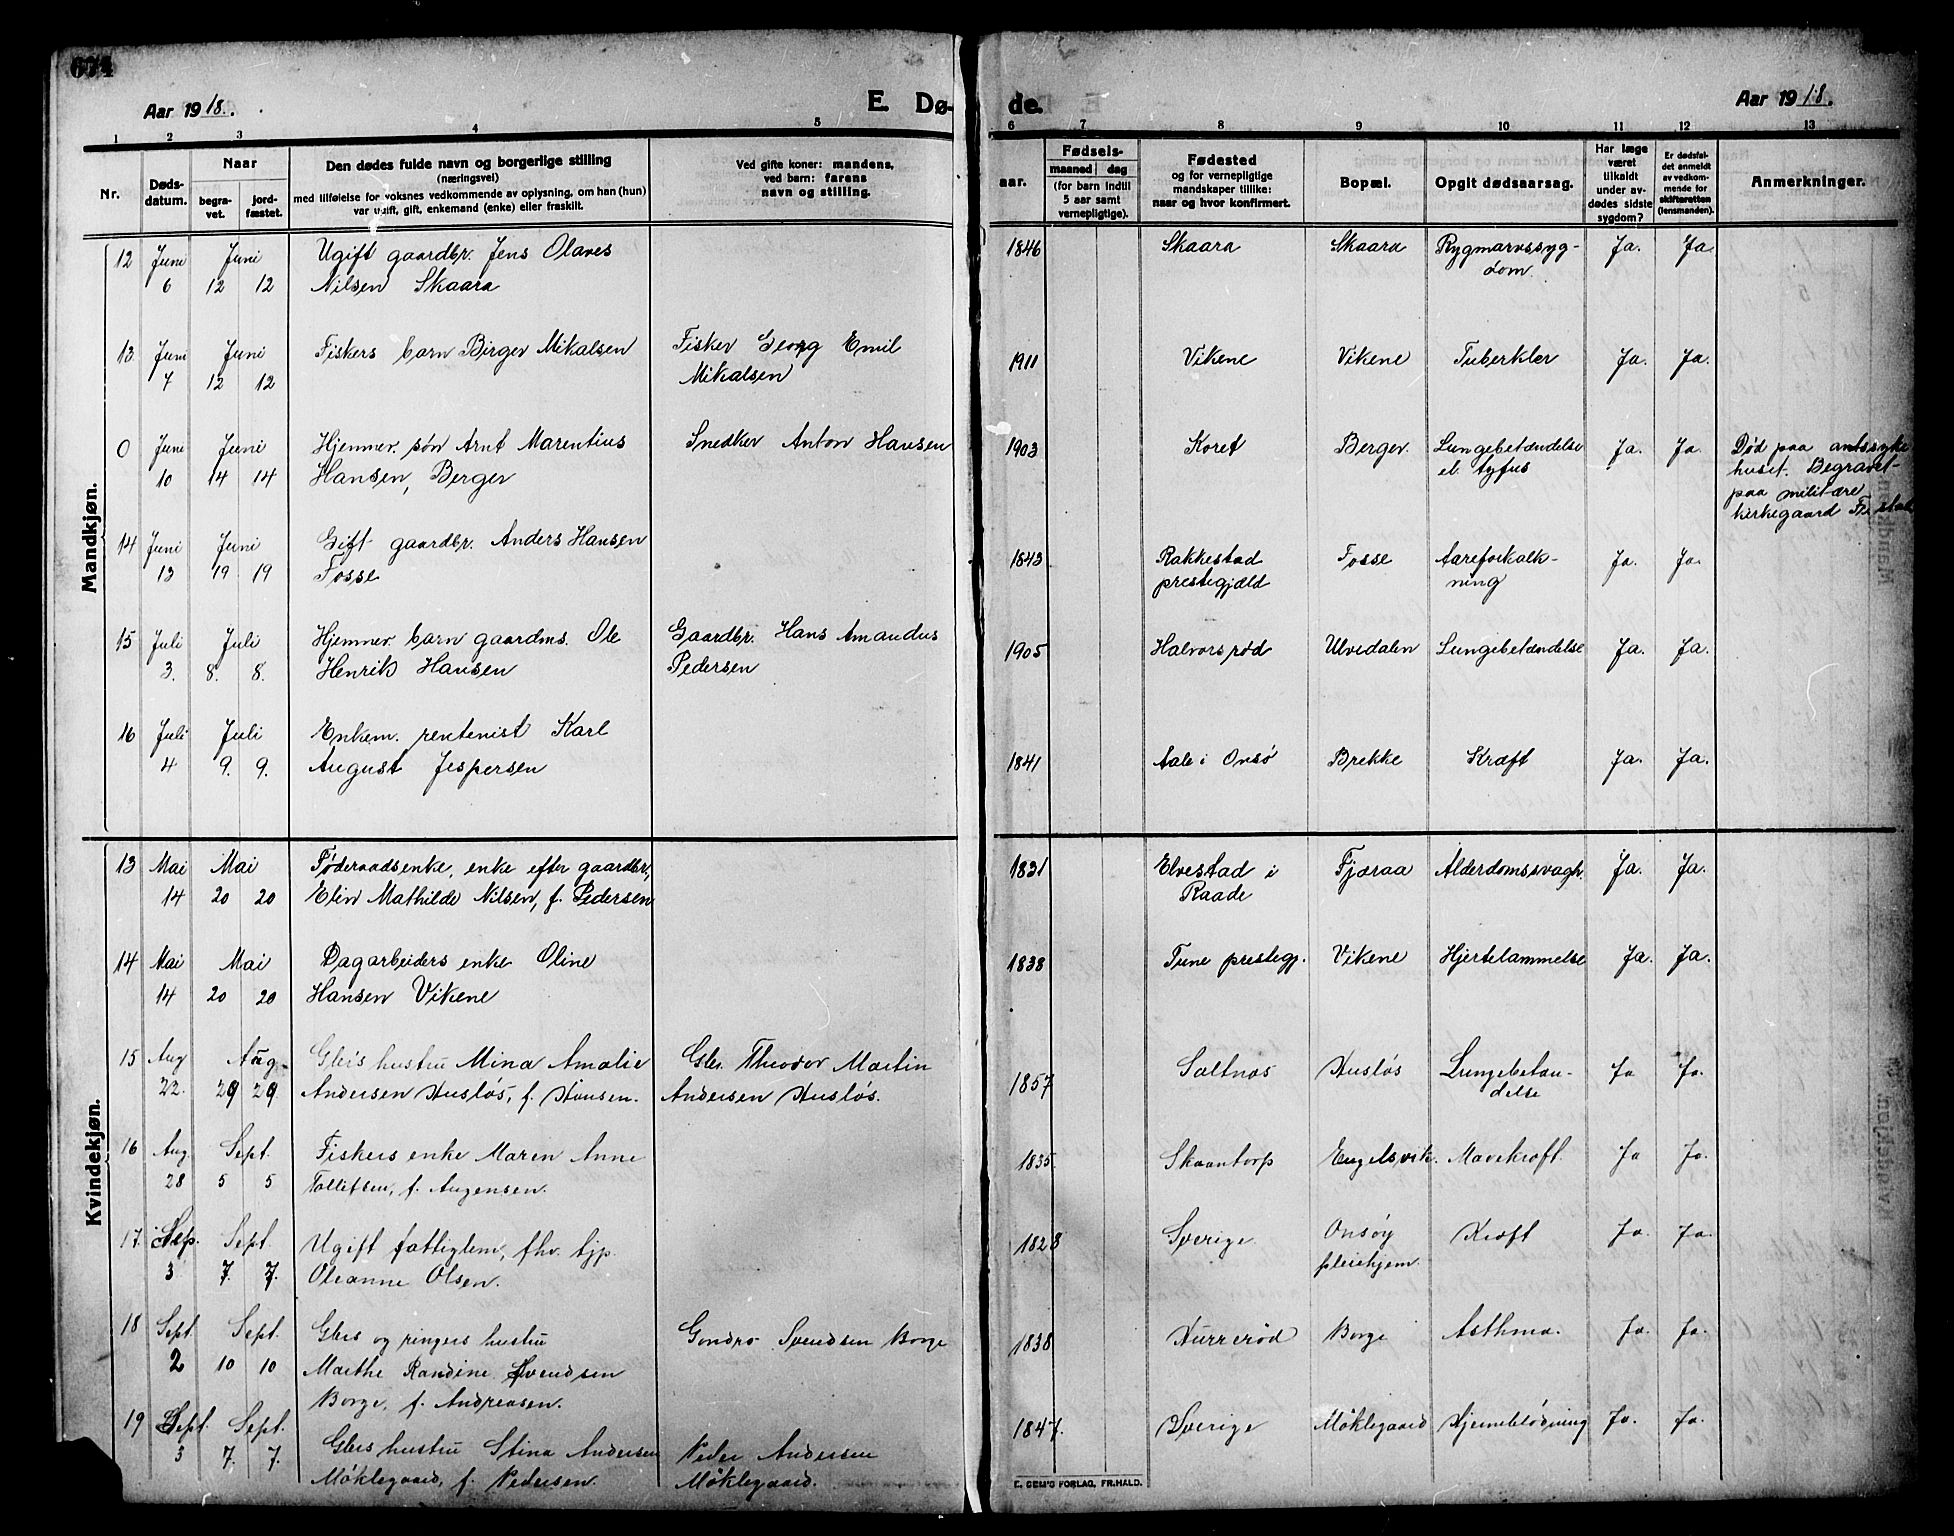 674
Aar 1918.
E. Dø-
de.
Aar 1918.
1 2 3 4 5 6 7 8 9 10 11 12 13
Nr.
Døds-
datum.
Naar
begra-
vet.
jord-
fæstet.
Den dødes fulde navn og borgerlige stilling
(næringsvei)
med tilføielse for voksnes vedkommende av oplysning, om han (hun)
var ugift, gift, enkemand (enke) eller fraskilt.
Ved gifte koner: mandens,
ved barn: farens
navn og stilling.
aar.
Fødsels-
maaned dag
(for barn indtil
5 aar samt
vernepligtige).
Fødested
og for vernepligtige
mandskaper tillike:
naar og hvor konfirmert.
Bopæl.
Opgit dødsaarsag.
Har læge
været
tilkaldt
under av-
dødes sidste
sygdom?
Er dødsfal-
det anmeldt
av vedkom-
mende for
skifteretten
(lensmanden).
Anmerkninger.
Mandkjøn.
12 Juni Juni Ugift gaardbr. Jens Olaves 1846 Skaara Skaara Rygmarvssyg- Ja. Ja.
6 12 12 Nilsen Skaara dom.
13 Juni Juni Fiskers barn Birger Mikalsen Fisker Georg Emil 1911 Vikene Vikene Tuberkler Ja. Ja.
7 12 12 Mikalsen
0 Juni Juni Hjemmev. søn Arnt Marentius Snedker Anton Hansen 1903 Koret Berger. Lungebetændelse Ja. Ja. Død paa amtssyke
10 14 14 Hansen, Berger el. tyfus huset. Begravet
paa militære
kirkegaard
14 Juni Juni Gift gaardbr. Anders Hansen 1843 Rakkestad Fosse Aareforkalk- Ja. Ja.
13 19 19 Fosse prestegjæld ning
15 Juli Juli Hjemmev. barn gaardms. Ole Gaardbr. Hans Amandus 1905 Halvorsrød Ulvedalen Lungebetændelse Ja. Ja.
3. 8. 8. Henrik Hansen Pedersen
16 Juli Juli Enkem. rentenist Karl 1841 Aale i Onsø Brekke Kræft Ja. Ja.
4 9. 9. August Jespersen
Kvindekjøn.
13 Mai Mai Føderaadsenke, enke efter gaardbr, 1831 Elvestad i Fjæraa Alderdomssvagh. Ja. Ja.
14 20 20 Elin Mathilde Nilsen, f. Pedersen Raade
14 Mai Mai Dagarbeiders enke Oline 1838 Tune prestegj. Vikene Hjertelammelse Ja. Ja.
14 20 20 Hansen Vikene
15 Aug Aug. Gbrs hustru Mina Amalie Gbr. Theodor Martin 1857 Saltnæs Husløs Lungebetæn- Ja Ja.
22. 29 29. Andersen Husløs, f. Hansen. Andersen Husløs. delse
16 Aug. Sept. Fiskers enke Maren Anne 1835. Skaantorp Engelsvik. Mavekræft. Ja Ja.
28 5 5 Tollefsen, f. Augensen.
17. Sep. Sept. Ugift fattiglem, fhv. tjp. 1828 Sverige. Onsøy Kræft Ja. Ja.
3 7. 7. Oleanne Olsen. pleiehjem.
18 Sept. Sept. Gbrs og ringers hustru Svendsen Borge 1838 Hurrerød Borge Asthma. Ja. Ja.
2 10 10 Marthe Randine Svendsen
Borge, f. Andreasen.
19 Sept. Sept. Gbrs hustru Stina Andersen Peder Andersen 1847. Sverige Møklegaard Hjerneblødning Ja. Ja.
3 7. 7. Møklegaard, f. Pedersen. Møklegaard.
E. SEM'S FORLAG, FR.HALD.